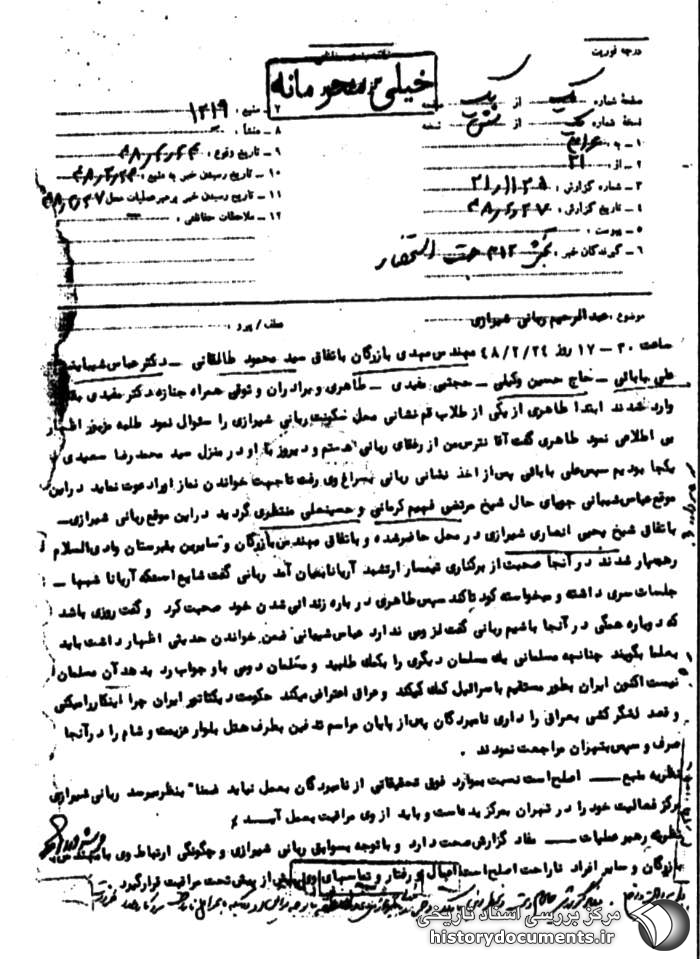 درجه فوریت
خیلی محرمانه
صفحه شماره یک از یک صفحه
نسخه شماره از نسخه
۱ ـ به :
۲ ـ از : ۲۱
۳ ـ شماره گزارش :
۴ ـ تاریخ گزارش : ۴۸/۲/۲۷
۵ ـ پیوست :
۶ ـ گیرندگان خبر : بخش ۳۱۲ جهت استحضار
۷ ـ منبع : ۱۳۱۹
۸ ـ منشأ :
۹ ـ تاریخ وقوع : ۴۸/۲/۲۴
۱۰ ـ تاریخ رسیدن خبر به منبع : ۴۸/۲/۲۴
۱۱ ـ تاریخ رسیدن خبر برهبر عملیات محل ۴۸/۲/۲۷
۱۲ ـ ملاحظات حفاظتی :
موضوع : عبدالرحیم ربانی شیرازی
عطف / پیرو :
ساعت ۳۰ـ۱۷ روز ۴۸/۲/۲۴ مهندس مهدی بازرگان باتفاق سید محمود طالقانی ـ دکتر عباس شیبانی
علی بابائی ـ حاج حسین وکیلی ـ مجتبی مفیدی ـ طاهری و برادران و توقی همراه جنازه دکتر مفیدی
وارد شدند ابتدا طاهری از یکی از طلاب قم نشانی محل سکونت ربانی شیرازی را سئوال نمود طلبه مزبور اظهار
بی اطلاعی نمود طاهری گفت آقا نترس من از رفقای ربانی هستم و دیروز با او در منزل سید محمدرضا سعیدی
یکجا بودیم سپس علی بابائی پس از اخذ نشانی ربانی بسراغ وی رفت تا جهت خواندن نماز او را دعوت نماید در این
موقع عباس شیبانی جویای حال شیخ مرتضی فهیم کرمانی و حسینعلی منتظری گردید در این موقع ربانی شیرازی ـ
باتفاق شیخ یحیی انصاری شیرازی در محل حاضر شده و باتفاق مهندس بازرگان و سایرین بقبرستان وادی السلام
رهسپار شدند در آنجا صحبت از برکناری تیمسار ارتشبد آریانا بمیان آمد ربانی گفت شایع است که آریانا شبها ـ
جلسات سری داشته و میخواسته کودتا کند سپس طاهری در باره زندانی شدن خود صحبت کرد و گفت روزی باشد
که دوباره همگی در آنجا باشیم ربانی گفت لزومی ندارد عباس شیبانی ضمن خواندن حدیثی اظهار داشت باید
بعلما بگویند چنانچه مسلمانی یک مسلمان دیگری را بکمک طلبید و مسلمان دومی باو جواب رد بدهد آن مسلمان
نیست اکنون ایران بطور مستقیم باسرائیل کمک میکند و عراق اعتراض میکند حکومت دیکتاتور ایران چرا اینکار را میکنی
و قصد لشگرکشی بعراق را داری نامبردگان پس از پایان مراسم تدفین بطرف هتل بلوار عزیمت و شام را در آنجا
صرف و سپس بتهران مراجعت نمودند .
نظریه منبع ـــ اصلح است نسبت بموارد فوق تحقیقاتی از نامبردگان بعمل نیاید ضمنا" بنظر میرسد ربانی شیرازی
مرکز فعالیت خود را در تهران بمرکز بدعاست و باید از وی مراقبت بعمل آید
نظریه رهبر عملیات ـــ مفاد گزارش صحت دارد و با توجه بسوابق ربانی شیرازی و چگونگی ارتباط وی با مهندس
بازرگان و سایر افراد ناراحت اصلح است اعمال و رفتار و تماسهای وی بیش از پیش تحت مراقبت قرار گیرد
مرکز بررسی اسناد تاریخی
historydocuments.ir